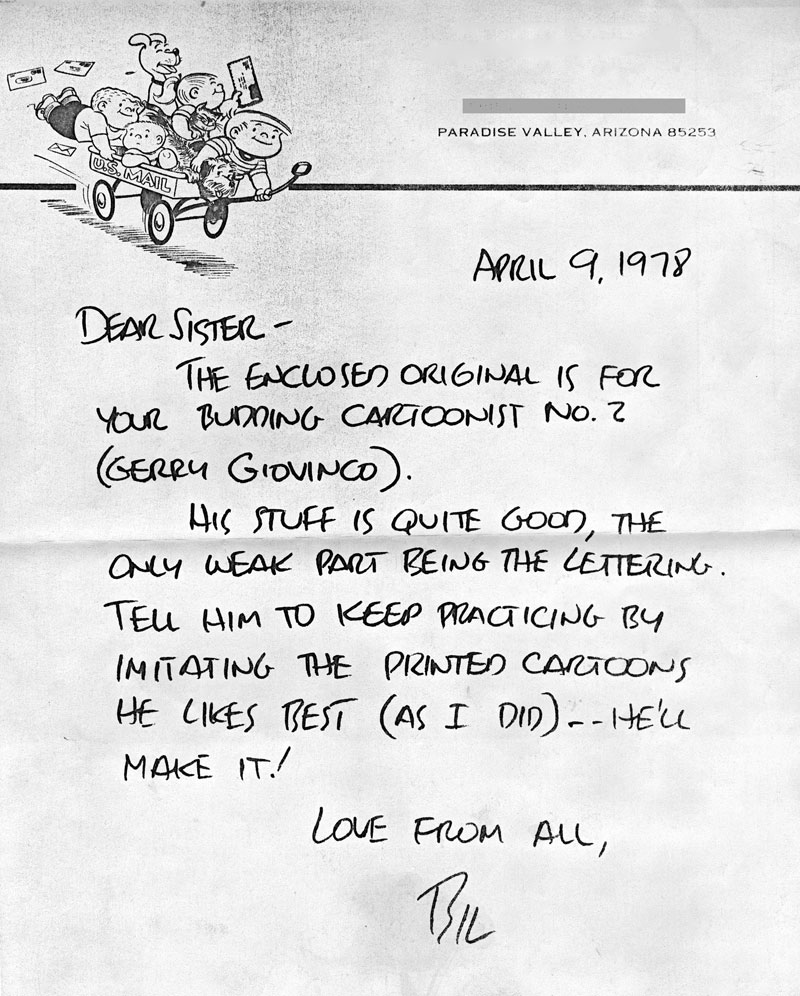 PARADISE VALLEY, ARIZONA 85253
U.S. MAIL
APRIL 9, 1978
DEAR SISTER –
THE ENCLOSED ORIGINAL IS FOR
YOUR BUDDING CARTOONIST NO. 2
(GERRY GIOVINCO).
HIS STUFF IS QUITE GOOD, THE
ONLY WEAK PART BEING THE LETTERING.
TELL HIM TO KEEP PRACTICING BY
IMITATING THE PRINTED CARTOONS
HE LIKES BEST (AS I DID)-- HE'LL
MAKE IT!
LOVE FROM ALL,
BIL